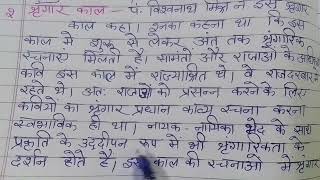 2 श्रृंगार काल - पं. विश्वनाथ मिश्र ने इसे श्रृंगार
काल कहा। इनका कहना था कि इस
काल में शुरू से लेकर अंत तक श्रृंगारिक
रचनाएं मिलती है। सामंतो और राजाओं के
कवि इस काल में राज्याश्रित थे। वे राजदरबार में
रहते थे। अतः राजाओं को प्रसन्न करने के लिए
कवियों का श्रृंगार प्रधान काव्य रचना करना
स्वभाविक ही था। नायक - नायिका भेद के साथ
प्रकृति के उद्दीपन रूप में भी श्रृंगारिकता के
दर्शन होते है। इस काल की रचनाओं में श्रृंगार